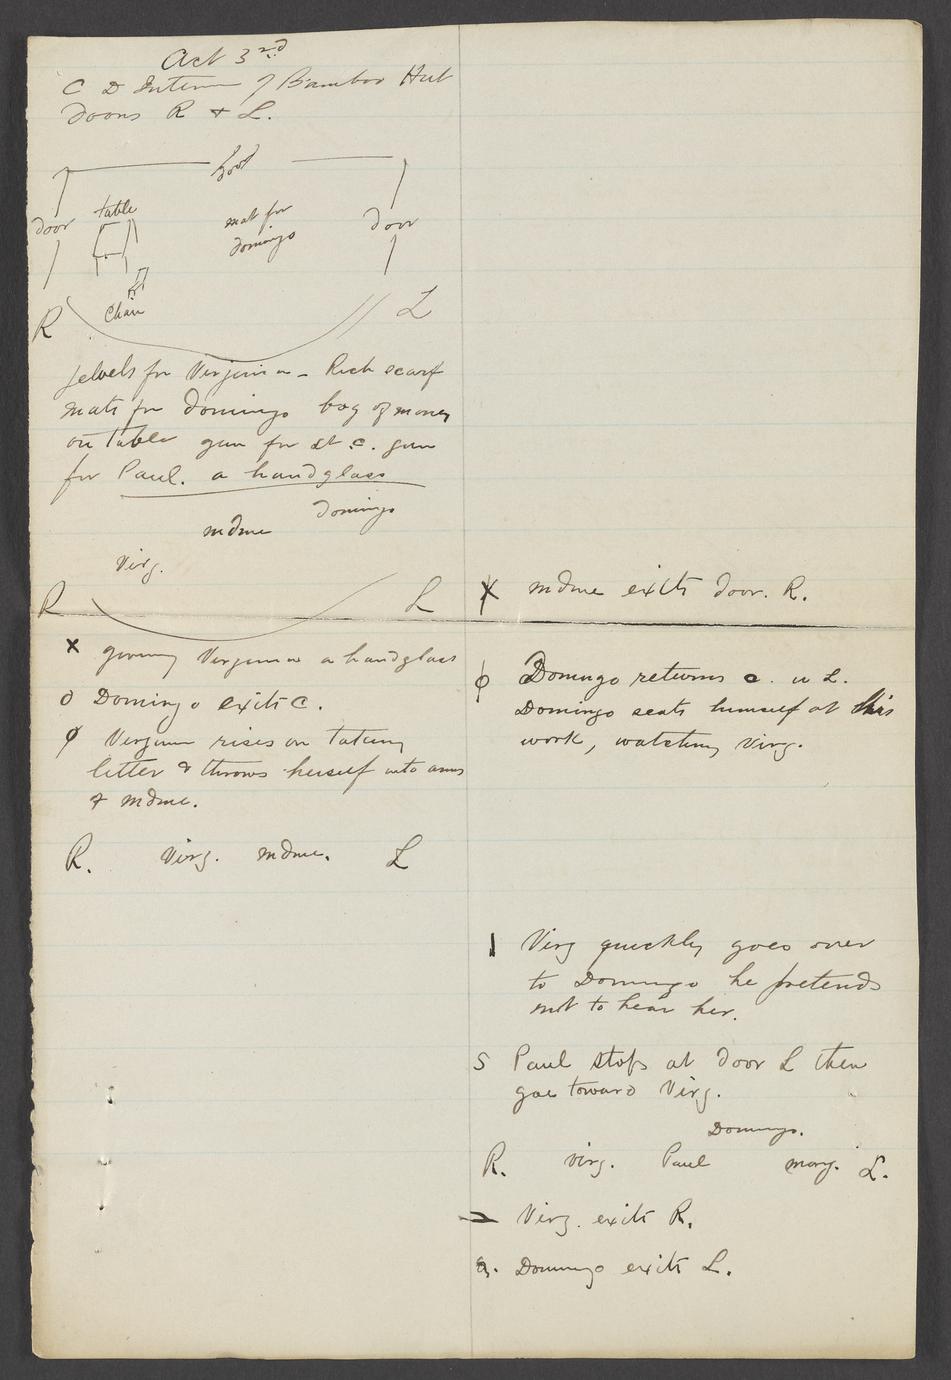 Act 3rd
C D Interior of Bamboo Hut
Doors R & L.
door table mat for door
Domingo
Chair
R L
Jewels for Virginia - Rich scarf
mats for Domingo bag of money
on table gun for St. C. gun
for Paul. a handglass
mdme Domingo
Virg.
R L
x giving Virginia a handglass
o Domingo exits C.
ø Virginia rises on taking
letter & throws herself into arms
of mdme.
R. Virg. mdme. L
x mdme exits door. R.
ϕ Domingo returns c. L.
Domingo seats himself at his
work, watching Virg.
1 Virg quickly goes over
to Domingo he pretends
not to hear her.
S Paul stops at door L then
goes toward Virg.
Domingo.
R. Virg. Paul L.
Virg. exits R.
Domingo exits L.